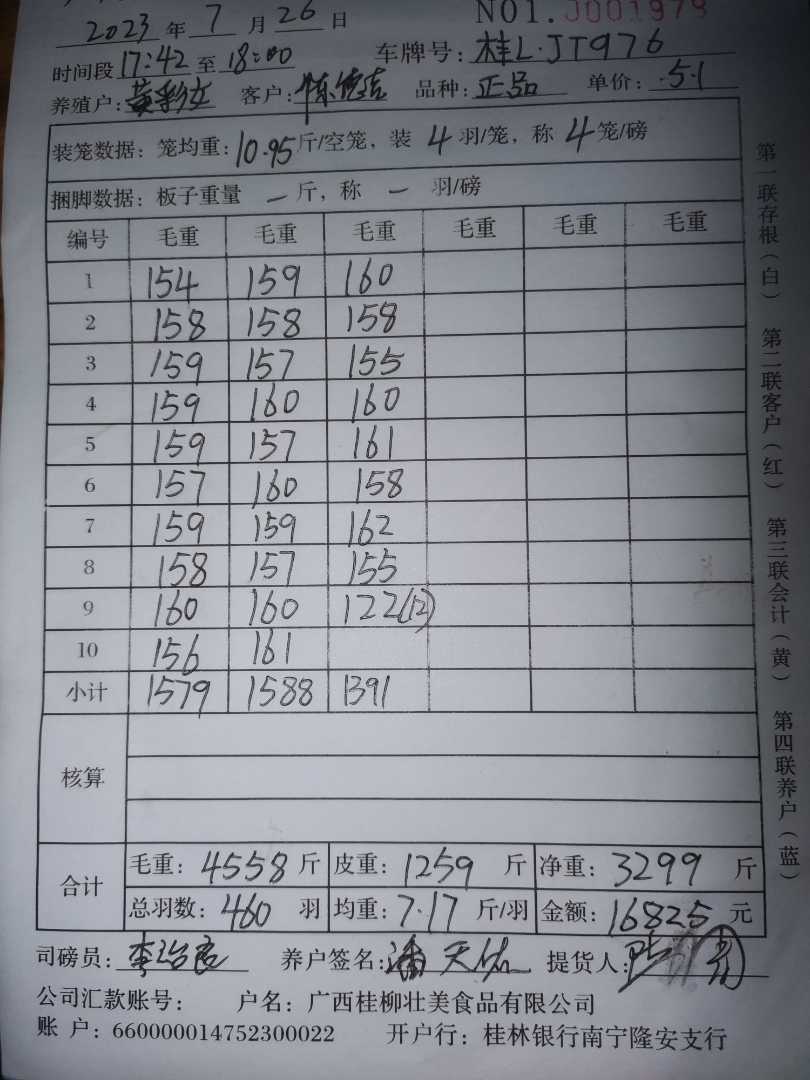 2023 年 7 月 26 日 NO1. J001979
时间段 17:42 至 18:00 车牌号: 桂L·JT976
养殖户: 黄彩文 客户: 陈德吉 品种: 正品 单价: 5.1
装笼数据: 笼均重: 10.95 斤/空笼, 装 4 羽/笼, 称 4 笼/磅
捆脚数据: 板子重量 一 斤, 称 一 羽/磅
编号 毛重 毛重 毛重 毛重 毛重 毛重
1 154 159 160
2 158 158 158
3 159 157 155
4 159 160 160
5 159 157 161
6 157 160 158
7 159 159 162
8 158 157 155
9 160 160 122(12)
10 156 161
小计 1579 1588 1391
核算
合计 毛重: 4558 斤 皮重: 1259 斤 净重: 3299 斤
总羽数: 460 羽 均重: 7.17 斤/羽 金额: 16825 元
司磅员: 李治良 养户签名: 潘天佑 提货人:
公司汇款账号: 户名: 广西桂柳壮美食品有限公司
账 户: 660000014752300022 开户行: 桂林银行南宁隆安支行
第一联存根(白) 第二联客户(红) 第三联会计(黄) 第四联养户(蓝)